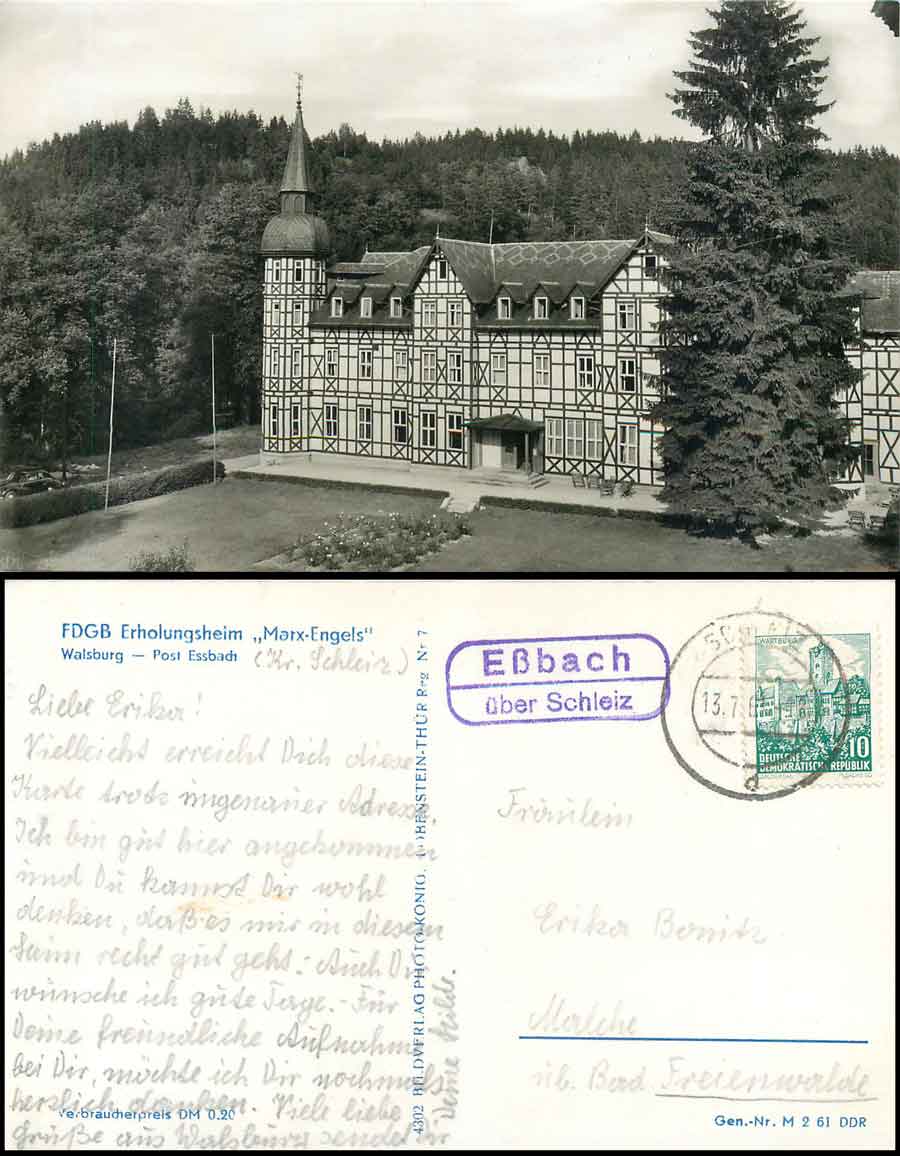 FDGB Erholungsheim „Marx-Engels"
Walsburg — Post Essbach (Kr. Schleiz)
Liebe Erika!
Vielleicht erreicht Dich diese
Karte trotz ungenauer Adresse.
Ich bin gut hier angekommen
und Du kannst Dir wohl
denken, daß es mir in diesem
Heim recht gut geht. Auch Dir
wünsche ich gute Tage. - Für
Deine freundliche Aufnahme
bei Dir, möchte ich Dir nochmals
herzlich danken. Viele liebe
Grüße aus Walsburg sendet Dir
Deine Hilde.
Verbraucherpreis DM 0.20
4302 BILDVERLAG PHOTO-KÖNIG, LOBENSTEIN-THÜR Reg Nr 7
Eßbach
über Schleiz
13.7.6
WARTBURG
10
DEUTSCHE
DEMOKRATISCHE REPUBLIK
Fräulein
Erika Bonitz
Malche
üb. Bad Freienwalde
Gen.-Nr. M 2 61 DDR